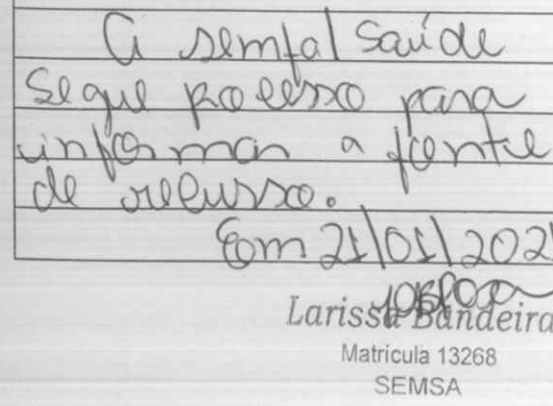 A Semfal Saúde
Segue processo para
informar a fonte
de recurso.
Em 21/01/202
Larissa Bandeira
Matrícula 13268
SEMSA